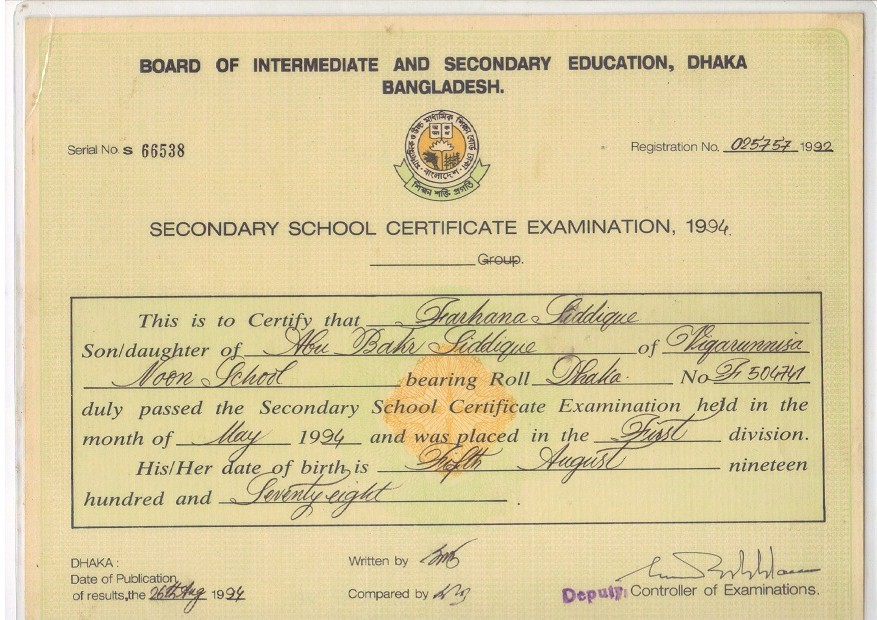 BOARD OF INTERMEDIATE AND SECONDARY EDUCATION, DHAKA
BANGLADESH.
Serial No. S 66538
Registration No. 025757 1992
মাধ্যমিক ও উচ্চ মাধ্যমিক শিক্ষা বোর্ড ঢাকা
বাংলাদেশ
SECONDARY SCHOOL CERTIFICATE EXAMINATION, 1994.
Group.
This is to Certify that Farhana Siddique
Son/daughter of Abu Bakr Siddique of Viqarunnisa
Noon School bearing Roll Dhaka. No F 504741
duly passed the Secondary School Certificate Examination held in the
month of May 1994 and was placed in the First division.
His/Her date of birth is Fifth August nineteen
hundred and Seventy eight.
DHAKA :
Date of Publication
of results, the 26th Aug 1994
Written by
Compared by
Deputy Controller of Examinations.